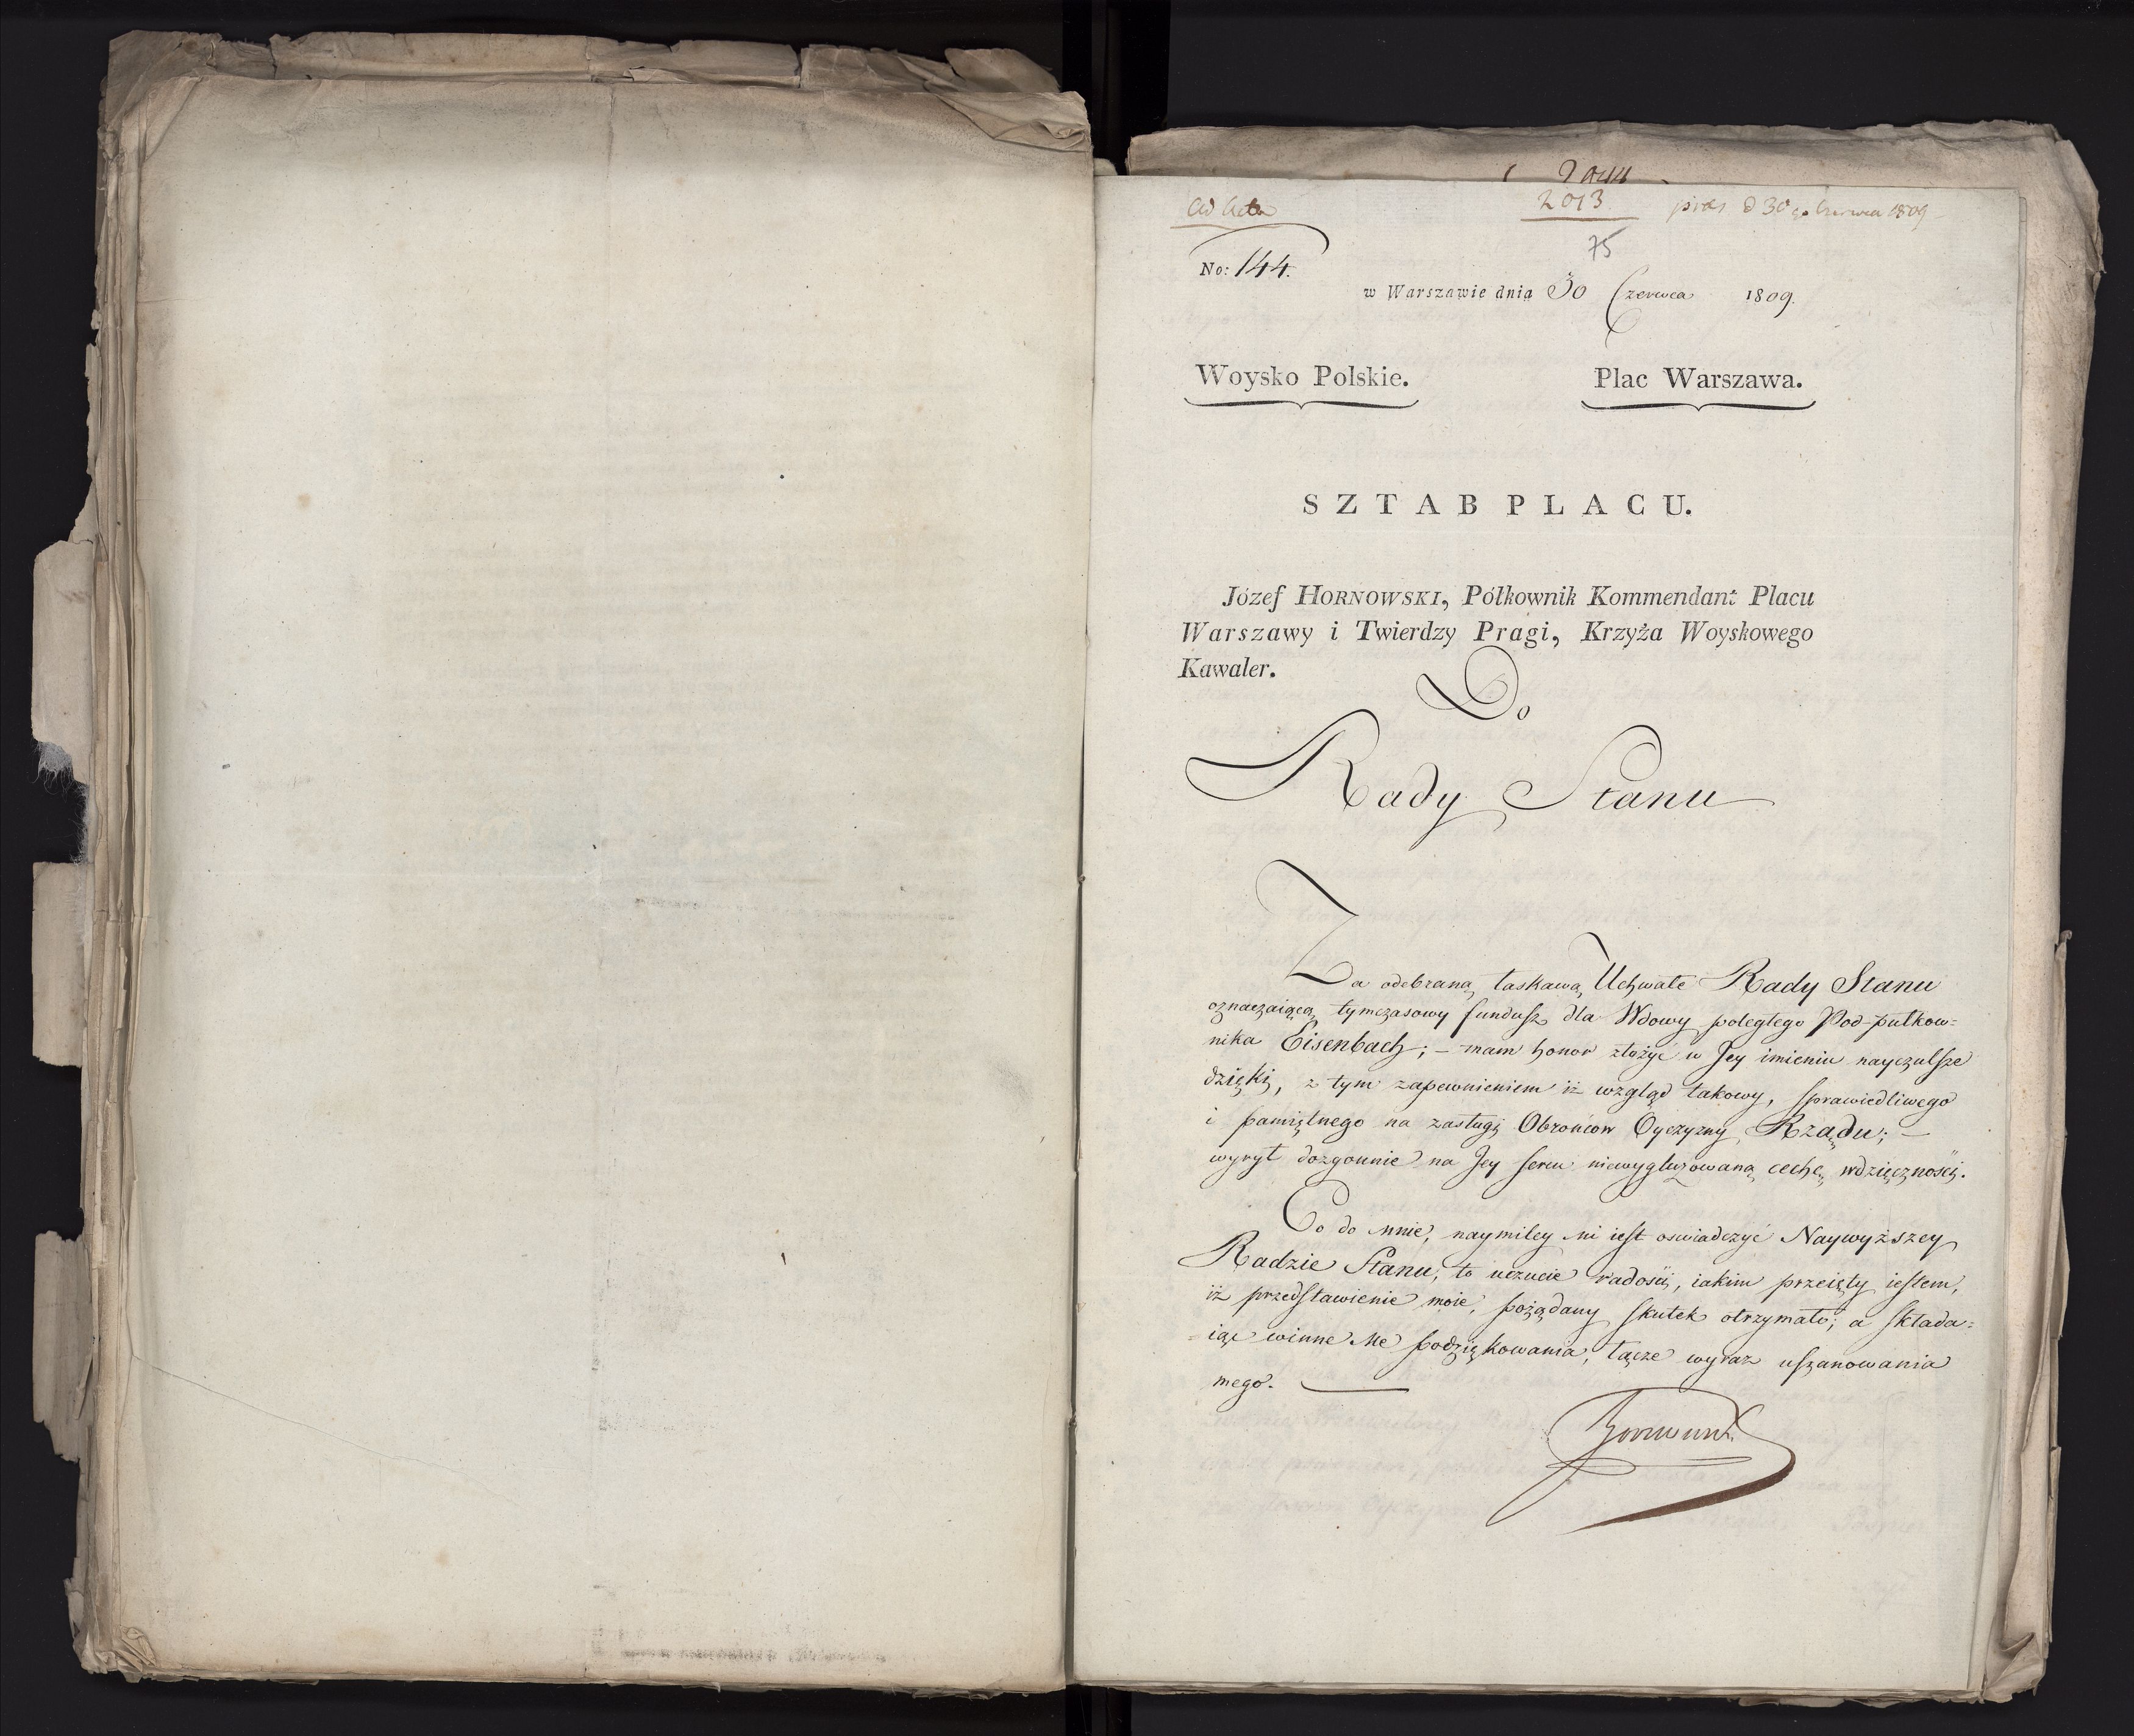 Ad Acta
2013
pras d 30go Czerwca 1809
75
No: 144.
w Warszawie dnia 30 Czerwca 1809.
Woysko Polskie. Plac Warszawa.
SZTAB PLACU.
Józef HORNOWSKI, Półkownik Kommendant Placu
Warszawy i Twierdzy Pragi, Krzyża Woyskowego
Kawaler.
Do
Rady Stanu
Za odebraną łaskawą Uchwałę Rady Stanu
oznaczaiącą tymczasowy fundusz dla Wdowy poległego Pod-pułkow=
nika Eisenbach; – mam honor złożyć w Jey imieniu nayczulsze
dzięki, z tym zapewnieniem iż wzgląd takowy, sprawiedliwego
i pamiętnego na zasługi Obrońców Oyczyzny Rządu; –
wyrył dozgonnie na Jey sercu niewygluzowaną cechę wdzięczności.
Co do mnie, naymiley mi iest oswiadczyć Naywyższey
Radzie Stanu, to uczucie radości, iakim przeięty iestem,
iż przedstawienie moie, pożądany skutek otrzymało; a składa=
iąc winne Me podziękowania, łączę wyraz uszanowania
mego.